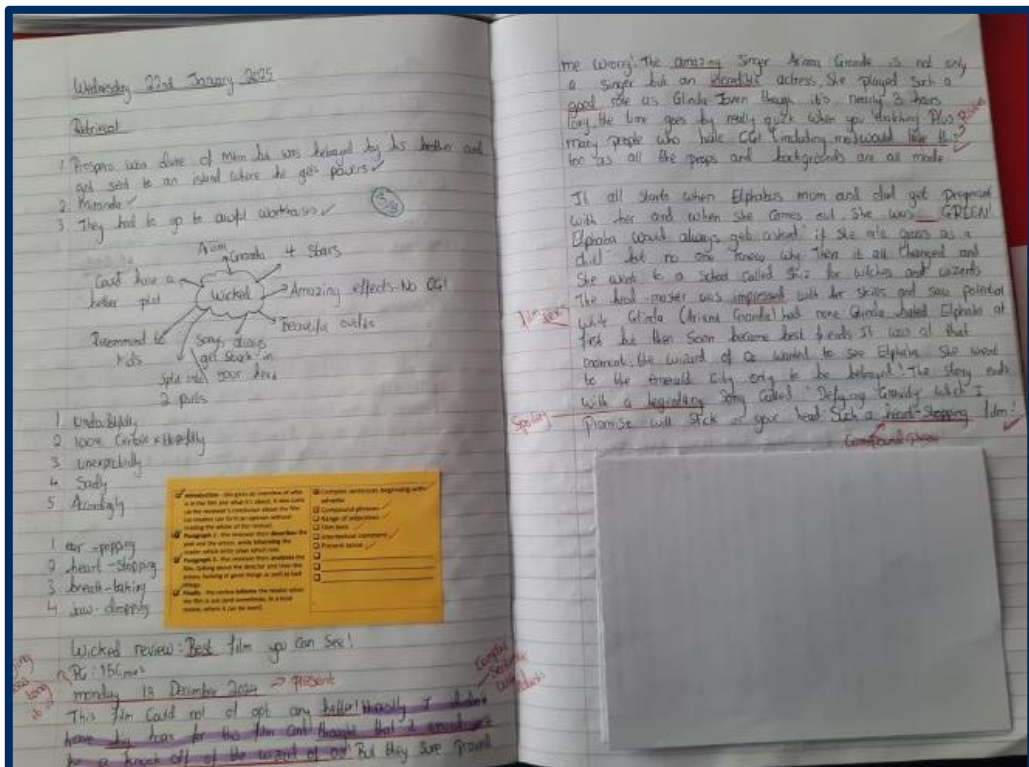 Wednesday 22nd January 2025
Retrieval
1. Prospero was duke of Milan but was betrayed by his brother and
got sent to an island where he gets powers ✓
2. Miranda ✓
3. They had to go to awful workhouses ✓
Ariana
Grande
4 stars
Could have a
better plot
Wicked
Amazing effects - No CGI
Beautiful outfits
Recommend to
kids
Songs always
get stuck in
your head
Split into
2 parts
1
2
3 unexpectedly
4 Sadly
5. Accordingly
1 ear-popping
2 heart-stopping
3 breath-taking
4 jaw-dropping
Introduction - this gives an overview of who
is in the film and what it's about. It also sums
up the reviewer's conclusion about the film
(so readers can form an opinion without
reading the whole of the review).
Paragraph 2 - the reviewer then describes the
plot and the actors, while informing the
reader which actor plays which role.
Paragraph 3 - the reviewer then analyses the
film, talking about the director and how the
actors, looking at good things as well as bad
things.
Finally - the review informs the reader when
the film is out (and sometimes, in a local
review, where it can be seen).
Complex sentences beginning with
adverbs
Compound phrases
Range of adjectives
Film lexis
Intertextual comment
Present tense
Wicked review: Best film you can see!
PG: 156 mns
monday December 2024 → present
This film could not of got any better!
have big hopes for this film and thought that it would just
be a knock off of the wizard of oz! But they sure proved
me wrong! The amazing singer Ariana Grande is not only
a singer but an incredible actress. She played such a
good role as Glinda. Even though it's nearly 3 hours
long, the time goes by really quick when you watching. Plus
many people who hate CGI (including me) would like it
too as all the props and backgrounds are all made
It all starts when Elphabas mum and dad get pregnant
with her and when she comes out, she was GREEN!
Elphaba would always get asked if she ate grass as a
child but no one knew why. Then it all changed and
she went to a school called Shiz for witches and wizards
The head-master was impressed with her skills and saw potential
while Glinda (Ariana Grande) had none. Glinda hated Elphaba at
first but then soon became best friends. It was at that
moment the wizard of Oz wanted to see Elphaba. She went
to the Emerald City only to be betrayed! The story ends
with a legendary song called 'Defying Gravity' which I
promise will stick in your head. Such a heart-stopping film!
Film lexis
Spelling